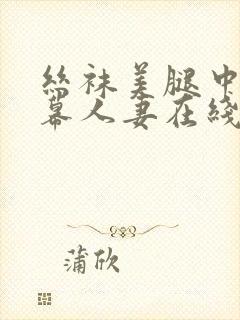 絲袜美腿中
幕人妻在綫
蒲欣